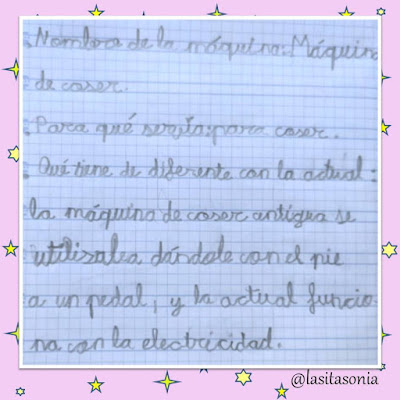 Nombre de la máquina: Máquina
de coser.
Para qué servía: para coser.
Qué tiene de diferente con la actual:
la máquina de coser antigua se
utilizaba dándole con el pie
a un pedal, y la actual funcio-
na con la electricidad.
@lasitasonia